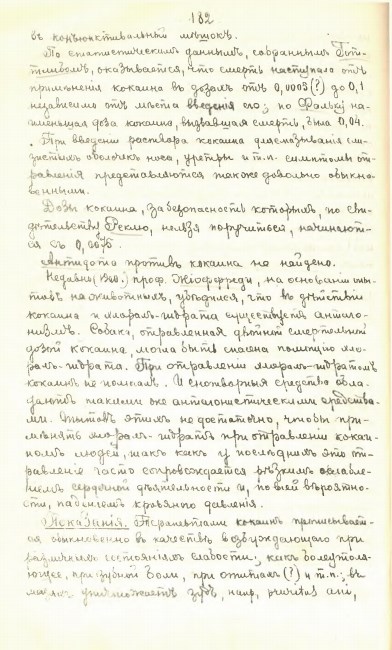 182
въ конъюнктивальный мѣшокъ.
По статистическимъ даннымъ, собраннымъ
оказывается, что смерть наступала отъ
примѣненія кокаина въ дозахъ отъ 0,0005(?) до 0,1
независимо отъ мѣста введенія его; по Фальку на-
именьшая доза кокаина, вызвавшая смерть, была 0,04.
При введеніи раствора кокаина для смазыванія сли-
зистыхъ оболочекъ носа, уретры и т.п. симптомы от-
равленія представляются также довольно обыкно-
венными.
Дозы кокаина, за безопасность которыхъ, по сви-
дѣтельству Реклю, нельзя поручиться, начинают-
ся съ
Антидота противъ кокаина не найдено.
Недавно проф. на основаніи опы-
товъ на животныхъ, убѣдился, что въ дѣйствіи
кокаина и хлоралъ-гидрата существуетъ антаго-
низмъ. Собака, отравленная двойной смертельной
дозой кокаина, могла быть спасена помощью хло-
ралъ-гидрата. При отравленіи хлоралъ-гидратомъ
кокаинъ не помогалъ. И снотворныя средства обла-
даютъ такими же антагонистическими средства-
ми. Опытовъ этихъ не достаточно, чтобы при-
мѣнять хлоралъ-гидратъ при отравленіи кокаи-
номъ людей, такъ какъ у послѣднихъ это от-
равленіе часто сопровождается рѣзкимъ ослабле-
ніемъ сердечной дѣятельности и, по всей вѣроятно-
сти, паденіемъ кровяного давленія.
Показанія. Терапевтами кокаинъ прописывает-
ся обыкновенно въ качествѣ возбуждающаго при
различныхъ состояніяхъ слабости; какъ болеутоля-
ющее, при зубной боли, при (?) и т.п.; въ
мазяхъ уничтожаетъ зудъ, напр. pruritus ani,